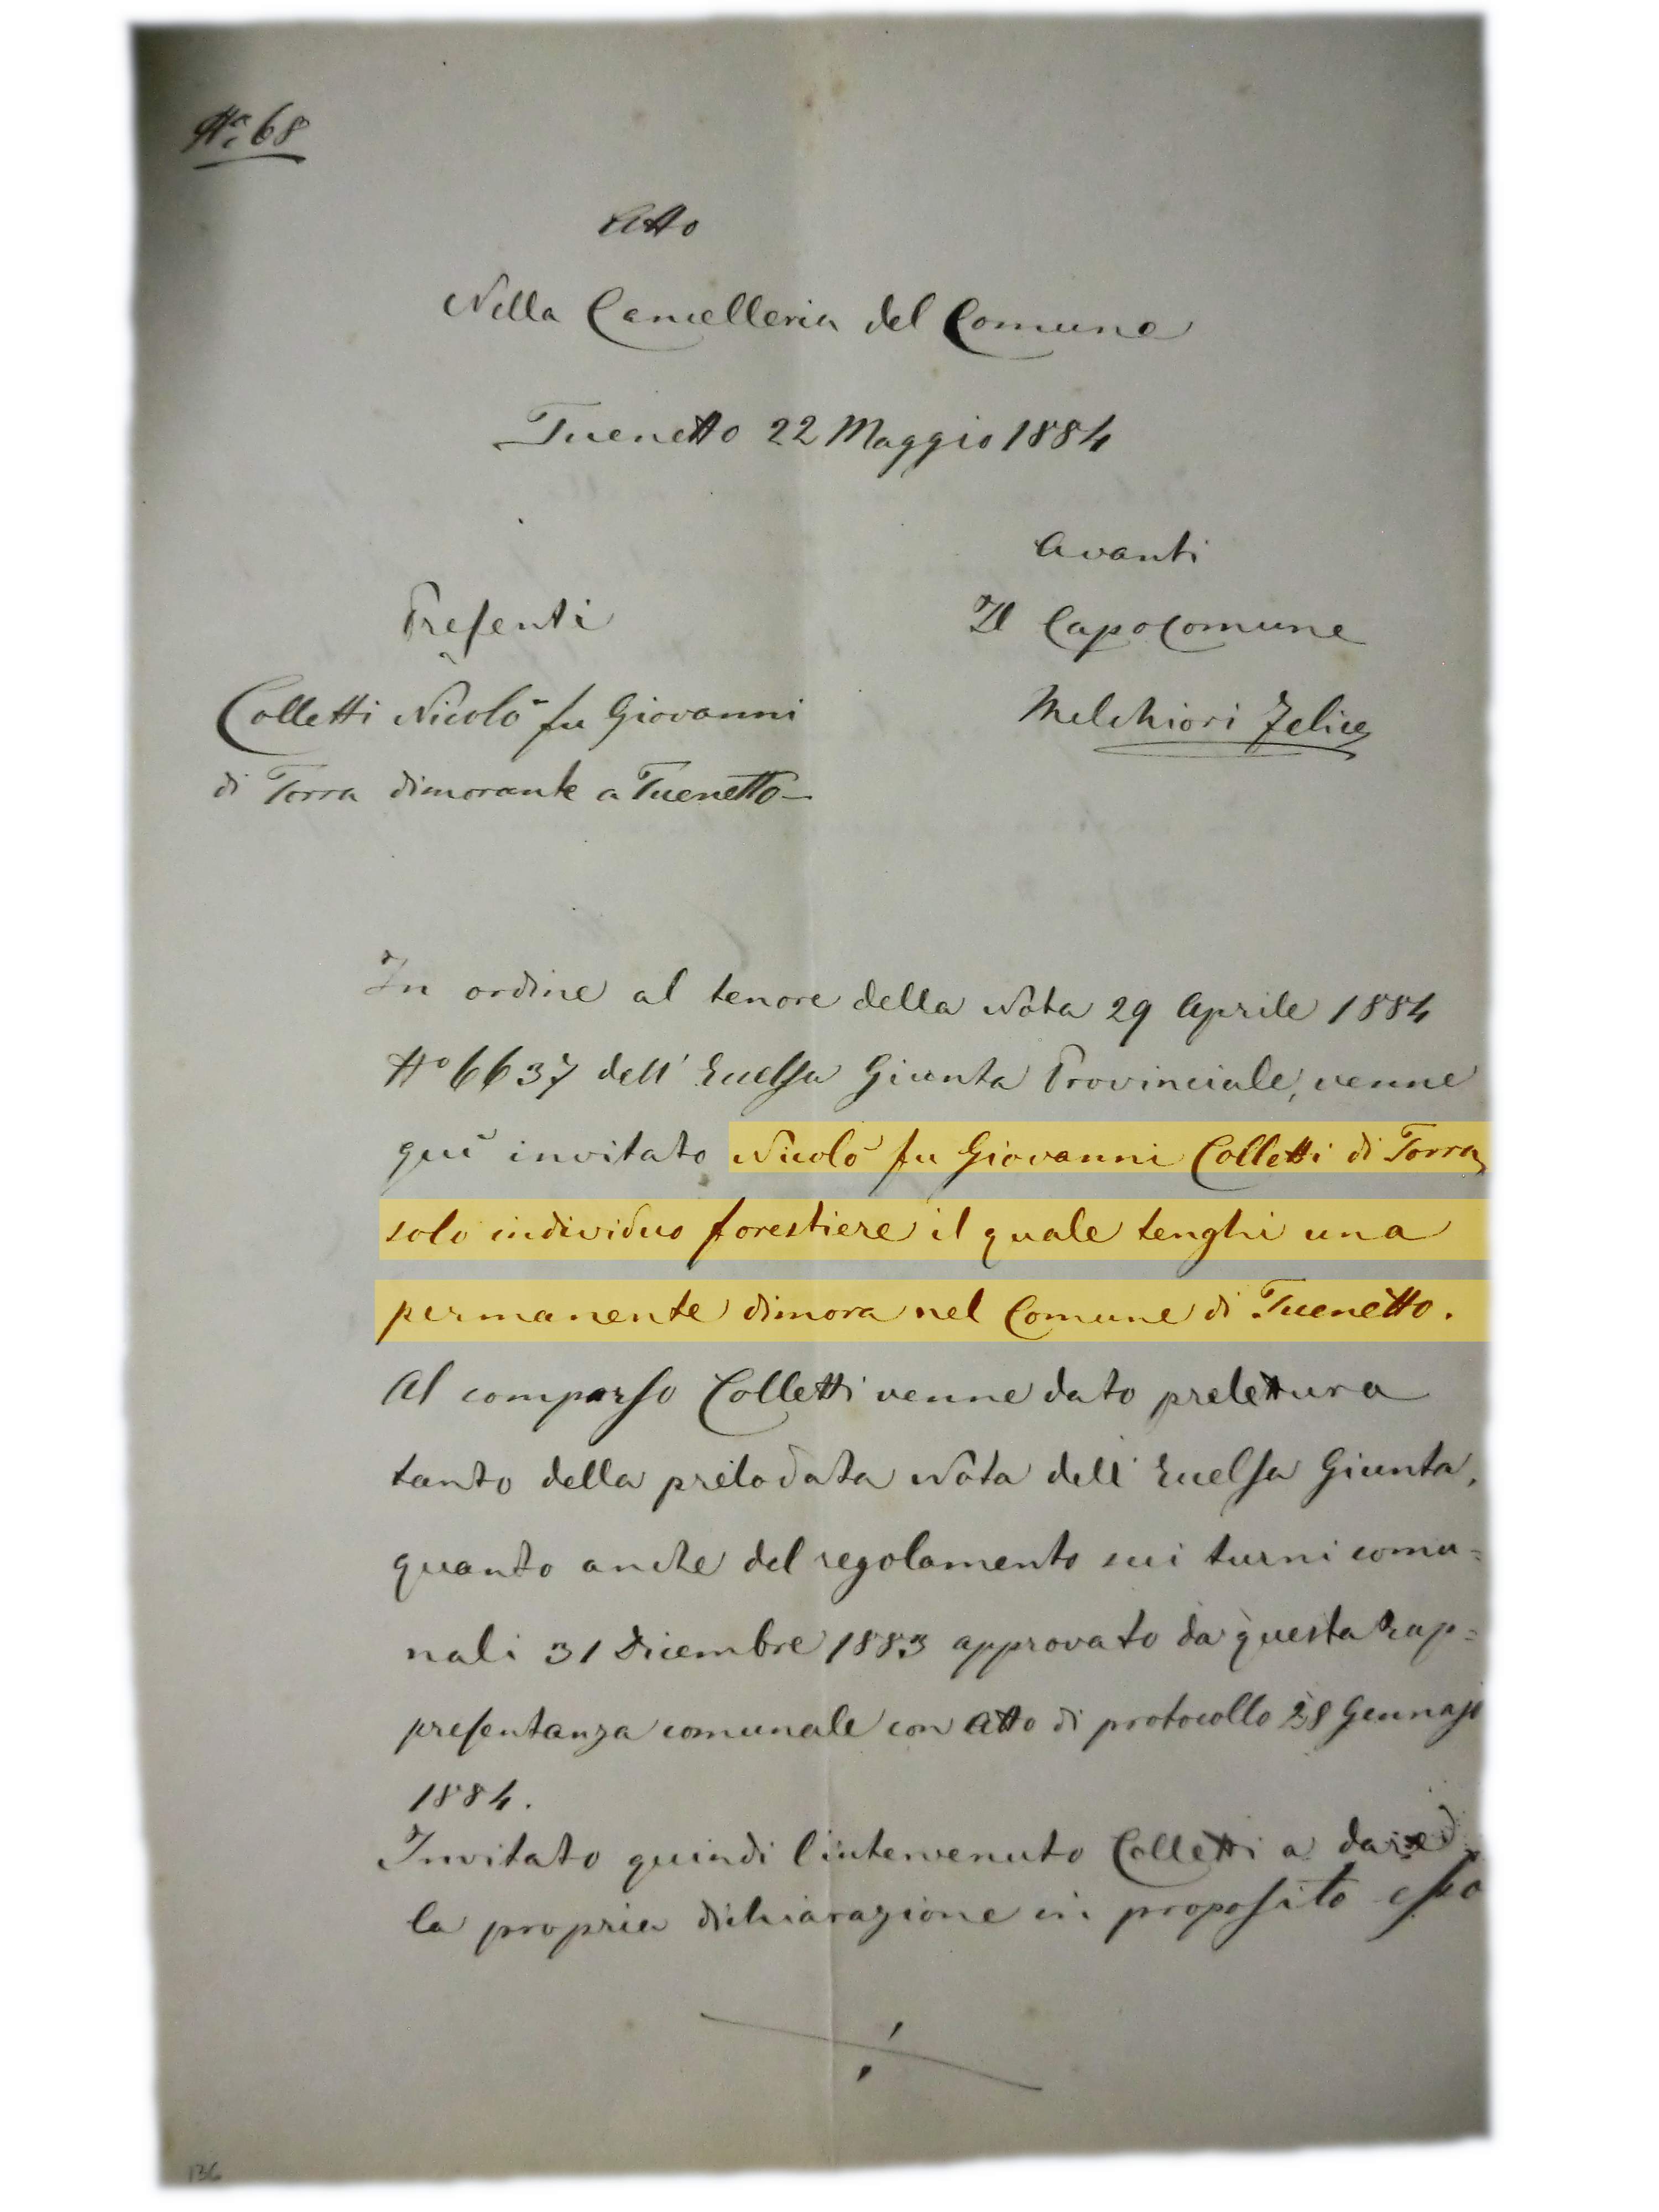 No. 68
Atto
Nella Cancelleria del Comune
Tuenetto 22 Maggio 1884
Avanti
Presenti
Il Capocomune
Colletti Nicolò fu Giovanni
Melchiori Felice
di Torra dimorante a Tuenetto
In ordine al tenore della Nota 29 Aprile 1884
No 6637 dell' Eccelsa Giunta Provinciale, venne
quì invitato Nicolò fu Giovanni Colletti di Torra,
solo individuo forestiere il quale tenghi una
permanente dimora nel Comune di Tuenetto.
Al comparso Colletti venne dato prelettura
tanto della prelodata Nota dell' Eccelsa Giunta,
quanto anche del regolamento sui turni comu=
nali 31 Dicembre 1883 approvato da questa Rap=
presentanza comunale con Atto di protocollo 28 Gennajo
1884.
Invitato quindi l'intervenuto Colletti a dare
la propria dichiarazione in proposito esso
./.
136